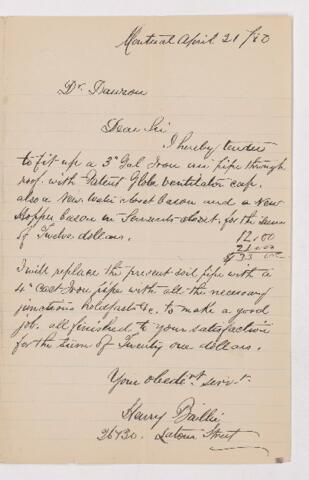 Montreal April 21/80
Dr. Dawson
Dear Sir
I hereby tender
to fit up a 3" Gal Iron air pipe through
roof. with Patent Globe ventilator cap.
also a New water closet bason and a New
Hopper bason in Servants closet. for the sum
of Twelve dollars.
12.00
21.00
$33.00
I will replace the present soil pipe with a
4" Cast Iron pipe with all the necessary
junctions holdfasts &c. to make a good
job. all finished to your satisfaction
for the sum of Twenty one dollars.
Your obedt. servt.
Harry Baillie
Latour Street